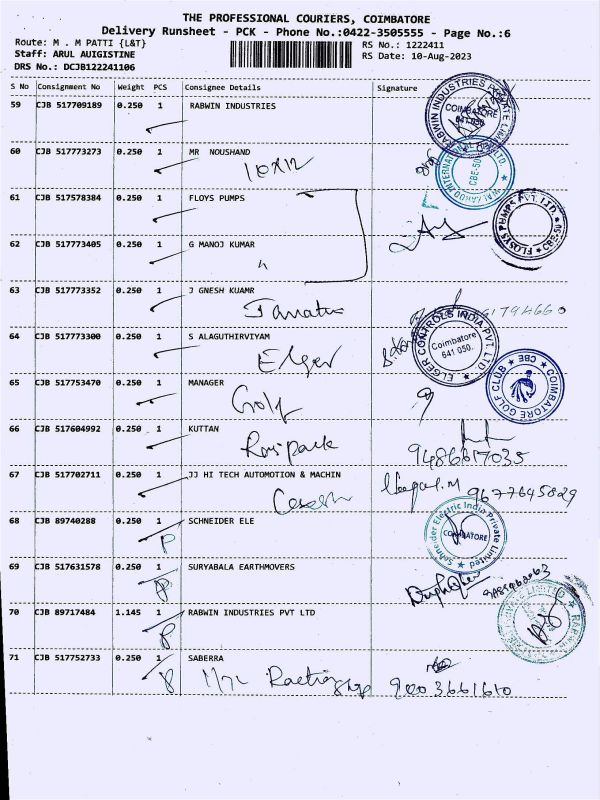 THE PROFESSIONAL COURIERS, COIMBATORE
Delivery Runsheet - PCK - Phone No.:0422-3505555 - Page No.:6
Route: M . M PATTI {L&T}
RS No.: 1222411
Staff: ARUL AUIGISTINE
RS Date: 10-Aug-2023
DRS No.: DCJB122241106
S No Consignment No Weight PCS Consignee Details Signature
59 CJB 517709189 0.250 1 RABWIN INDUSTRIES
RABWIN INDUSTRIES PRIVATE LIMITED
COIMBATORE
641 050
60 CJB 517773273 0.250 1 MR NOUSHAND
10x12
INTERNATIONAL
CBE-50
61 CJB 517578384 0.250 1 FLOYS PUMPS
FLOSYS PUMPS PVT. LTD.
CBE-50
62 CJB 517773405 0.250 1 G MANOJ KUMAR
63 CJB 517773352 0.250 1 J GNESH KUAMR
64 CJB 517773300 0.250 1 S ALAGUTHIRVIYAM
Elger
ELGER CONTROLS INDIA PVT. LTD.
Coimbatore
641 050.
65 CJB 517753470 0.250 1 MANAGER
Golf
COIMBATORE GOLF CLUB
CBE
66 CJB 517604992 0.250 1 KUTTAN
9486617035
67 CJB 517702711 0.250 1 JJ HI TECH AUTOMOTION & MACHIN
9677645829
68 CJB 89740288 0.250 1 SCHNEIDER ELE
P
Schneider Electric India Private Limited
COIMBATORE
69 CJB 517631578 0.250 1 SURYABALA EARTHMOVERS
P
70 CJB 89717484 1.145 1 RABWIN INDUSTRIES PVT LTD
P
71 CJB 517752733 0.250 1 SABERRA
P
9003661610